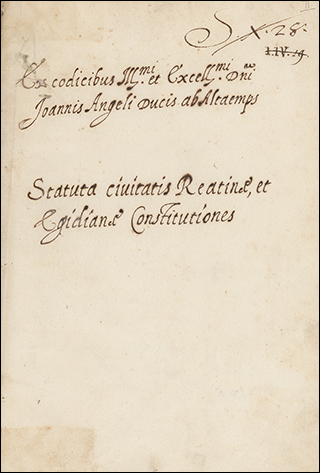 S X. 28.
I.IV.14
Ex codicibus Ill.mi et Excell.mi Dni
Joannis Angeli Ducis ab Altaemps
Statuta ciuitatis Reatinæ, et
Ægidianæ Constitutiones